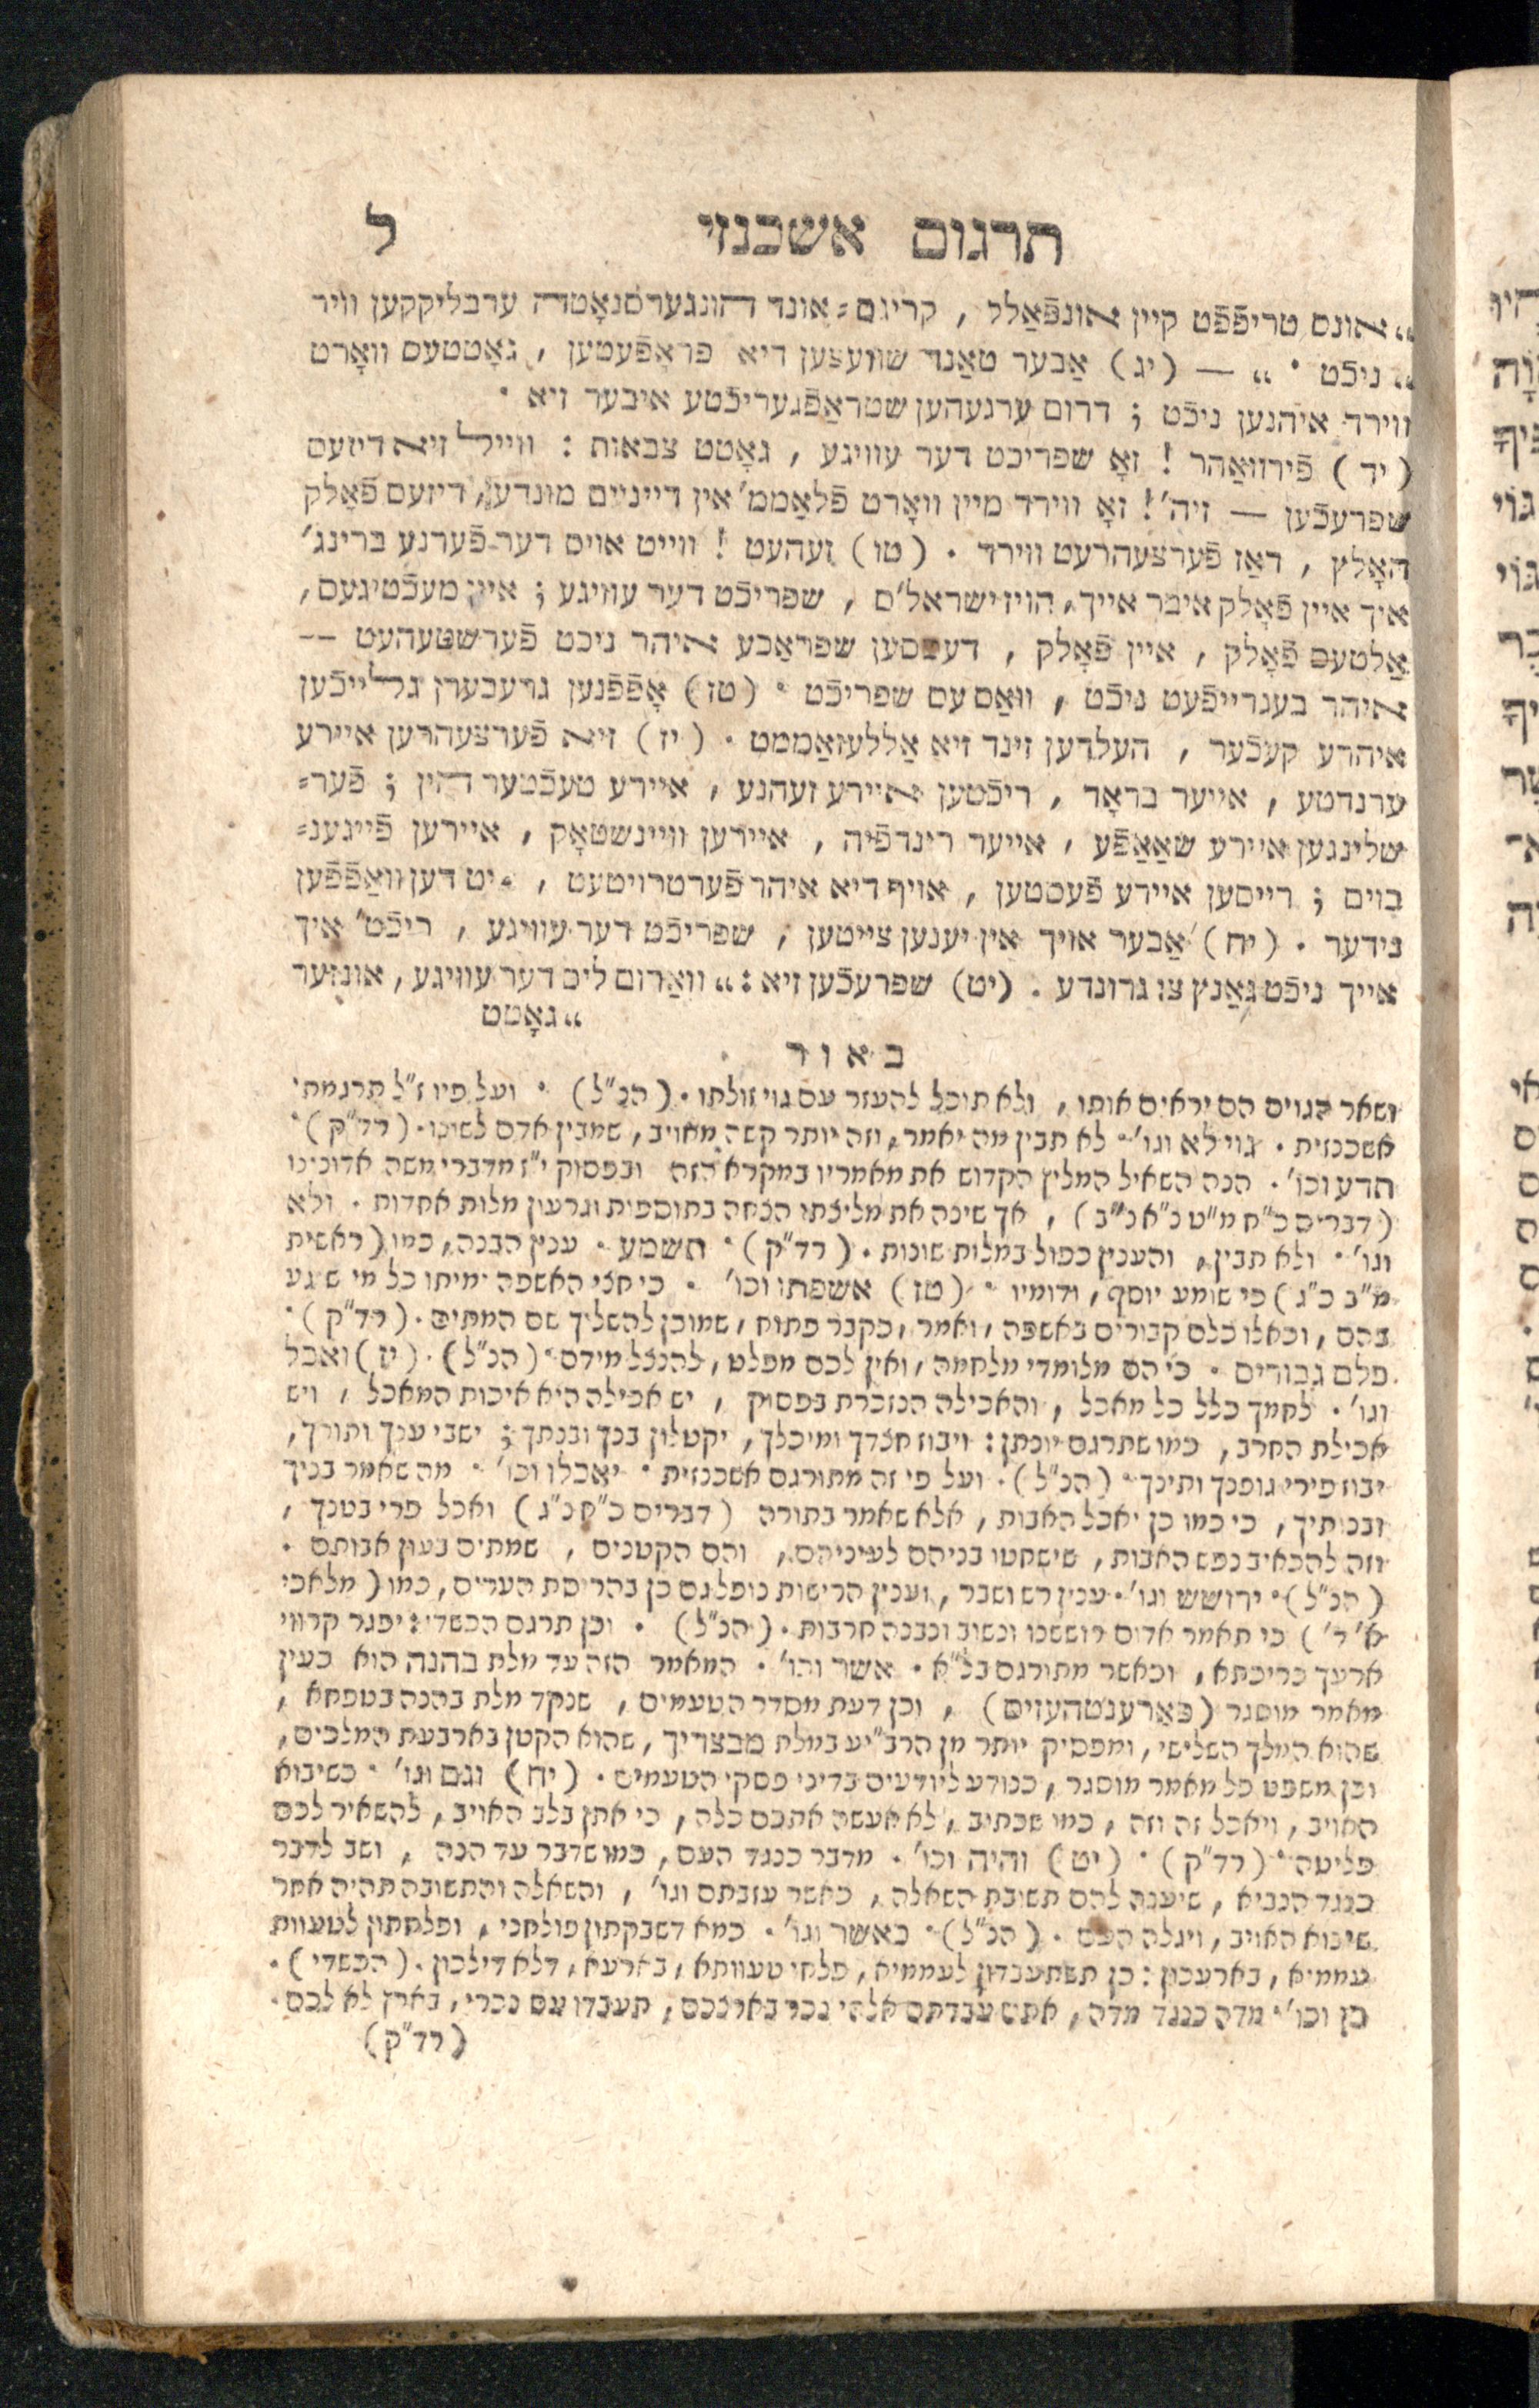 תרגום אשכנזי ל
„ אונס טריפֿפֿט קיין אונפֿאַלל , קריגס⸗אונד הונגערסנאָטה ערבליקקען וויר
„ ניכֿט • „ — (יג) אַבער טאַנד שוועצען דיא פראָפֿעטען , גאָטטעס וואָרט
ווירד איהנען ניכֿט ; דרום ערגעהען שטראַפֿגעריכֿטע איבער זיא •
(יד) פֿירוואַהר ! זאָ שפריכט דער עוויגע , גאָטט צבאות : ווייל זיא דיזעס
שפרעכֿען — זיה' ! זאָ ווירד מיין וואָרט פֿלאַממ' אין דייניים מונדע, דיזעס פֿאָלק
האָלץ , דאַז פֿערצעהרעט ווירד . (טו) זעהעט ! ווייט אויס דער פֿערנע ברינג'
איך איין פֿאָלק איבר אייך, הויז ישראל'ס , שפריכֿט דער עוויגע ; איין מעכֿטיגעס,
אַלטעס פֿאָלק , איין פֿאָלק , דעססען שפראַכע איהר ניכט פֿערשטעהעט --
איהר בעגרייפֿעט ניכֿט , וואַס עס שפריכֿט • (טז) אָפֿפֿנען גרעבערן גללייכֿען
איהרע קעכֿער , העלדען זינד זיא אַללעזאַממט . (יז) זיא פֿערצעהרען איירע
ערנדטע , אייער בראָד , ריכֿטען איירע זעהנע , איירע טעכֿטער הין ; פֿער⸗
שלינגען איירע שאַאַפֿע , אייער רינדפֿיה , איירען וויינשטאָק , איירען פֿייגענ⸗
בוים ; רייסען איירע פֿעסטען , אויף דיא איהר פֿערטרויטעט , מיט דען וואַפֿפֿען
נידער . (יח) אַבער אויך אין יענען צייטען , שפריכֿט דער עוויגע , ריכֿט' איך
אייך ניכֿט גאַנץ צו גרונדע . (יט) שפרעכֿען זיא : „ וואַרום ליס דער עוויגע , אונזער
„ גאָטט
באור
ושאר הגוים הם יראים אותו , ולא תוכל להעזר עם גוי זולתו . (הנ"ל) • ועל פיו ז"ל תרגמתי
אשכנזית . גוי לא וגו' • לא תבין מה יאמר, וזה יותר קשה מאויב, שמבין אדם לשונו . (רד"ק) •
תדע וכו' . הנה השאיל המליץ הקדוש את מאמריו במקרא הזה ובפסוק י"ז מדברי משה אדונינו
(דברים כ"ח מ"ט נ"א נ"ב) , אך שינה את מליצתו הצחה בתוספות וגרעון מלות אחדות . ולא
וגו' • ולא תבין, והענין כפול במלות שונות . (רד"ק) • תשמע . ענין הבנה, כמו (ראשית
מ"ב כ"ג) כי שומע יוסף, ודומיו • (טז) אשפתו וכו' • כי חצי האשפה ימיתו כל מי שיגע
בהם , וכאלו כלם קבורים באשפה , ואמר , כקבר פתוח , שמוכן להשליך שם המתים . (רד"ק) •
כלם גבורים . כי הם מלומדי מלחמה , ואין לכם מפלט , להנצל מידם • (הנ"ל) . (יז) ואכל
וגו' . לחמך כלל כל מאכל , והאכילה הנזכרת בפסוק , יש אכילה היא איכות המאכל , ויש
אכילת החרב, כמו שתרגם יונתן : ויבוז חצדך ומיכלך, יקטלון בנך ובנתך ; ישבי ענך ותורך,
יבוז פירי גופנך ותינך • (הנ"ל) . ועל פי זה מתורגם אשכנזית • יאכלו וכו' • מה שאמר בניך
ובנותיך , כי כמו כן יאכל האבות , אלא שאמר בתורה (דברים כ"ח נ"ג) ואכל פרי בטנך ,
וזה להכאיב נפש האבות , שישחטו בניהם לעיניהם, והם הקטנים , שמתים בעון אבותם •
(הנ"ל) • ירושש וגו' . ענין רש ושבר, וענין הרישות נופל גם כן בהריסת הערים, כמו (מלאכי
א' ד') כי תאמר אדום רוששנו ונשוב ונבנה חרבות . (הנ"ל) • וכן תרגם הכשדי : יפגר קרווי
ארעך כריכתא , וכאשר מתורגם בל"א . אשר וגו' . המאמר הזה עד מלת בהנה הוא כעין
מאמר מוסגר (פּאַרענטהעזיס) , וכן דעת מסדר הטעמים , שנקד מלת בהנה בטפחא ,
שהוא המלך השלישי, ומפסיק יותר מן הרב"יע במלת מבצריך, שהוא הקטן בארבעת המלכים,
וכן משפט כל מאמר מוסגר , כנודע ליודעים בדיני פסקי הטעמים . (יח) וגם וגו' • כשיבוא
האויב, ויאכל זה וזה , כמו שכתיב, לא אעשה אתכם כלה, כי אתן בלב האויב, להשאיר לכם
פליטה • (רד"ק) • (יט) והיה וכו' . מדבר כנגד העם , כמו שדבר עד הנה , ושב לדבר
כנגד הנביא , שיענה להם תשובת השאלה , כאשר עזבתם וגו' , והשאלה והתשובה תהיה אחר
שיבוא האויב , ויגלה העם . (הנ"ל) • כאשר וגו' . כמא דשבקתון פולחני , ופלחתון לטעוות
עממיא , בארעכון : כן תשתעבדון לעממיא , פלחי טעוותא , בארעא , דלא דילכון . (הכשדי) •
כן וכו' • מדה כנגד מדה , אתם עבדתם אלהי נכר בארצכם , תעבדו עם נכרי , בארץ לא לכם .
(רד"ק)